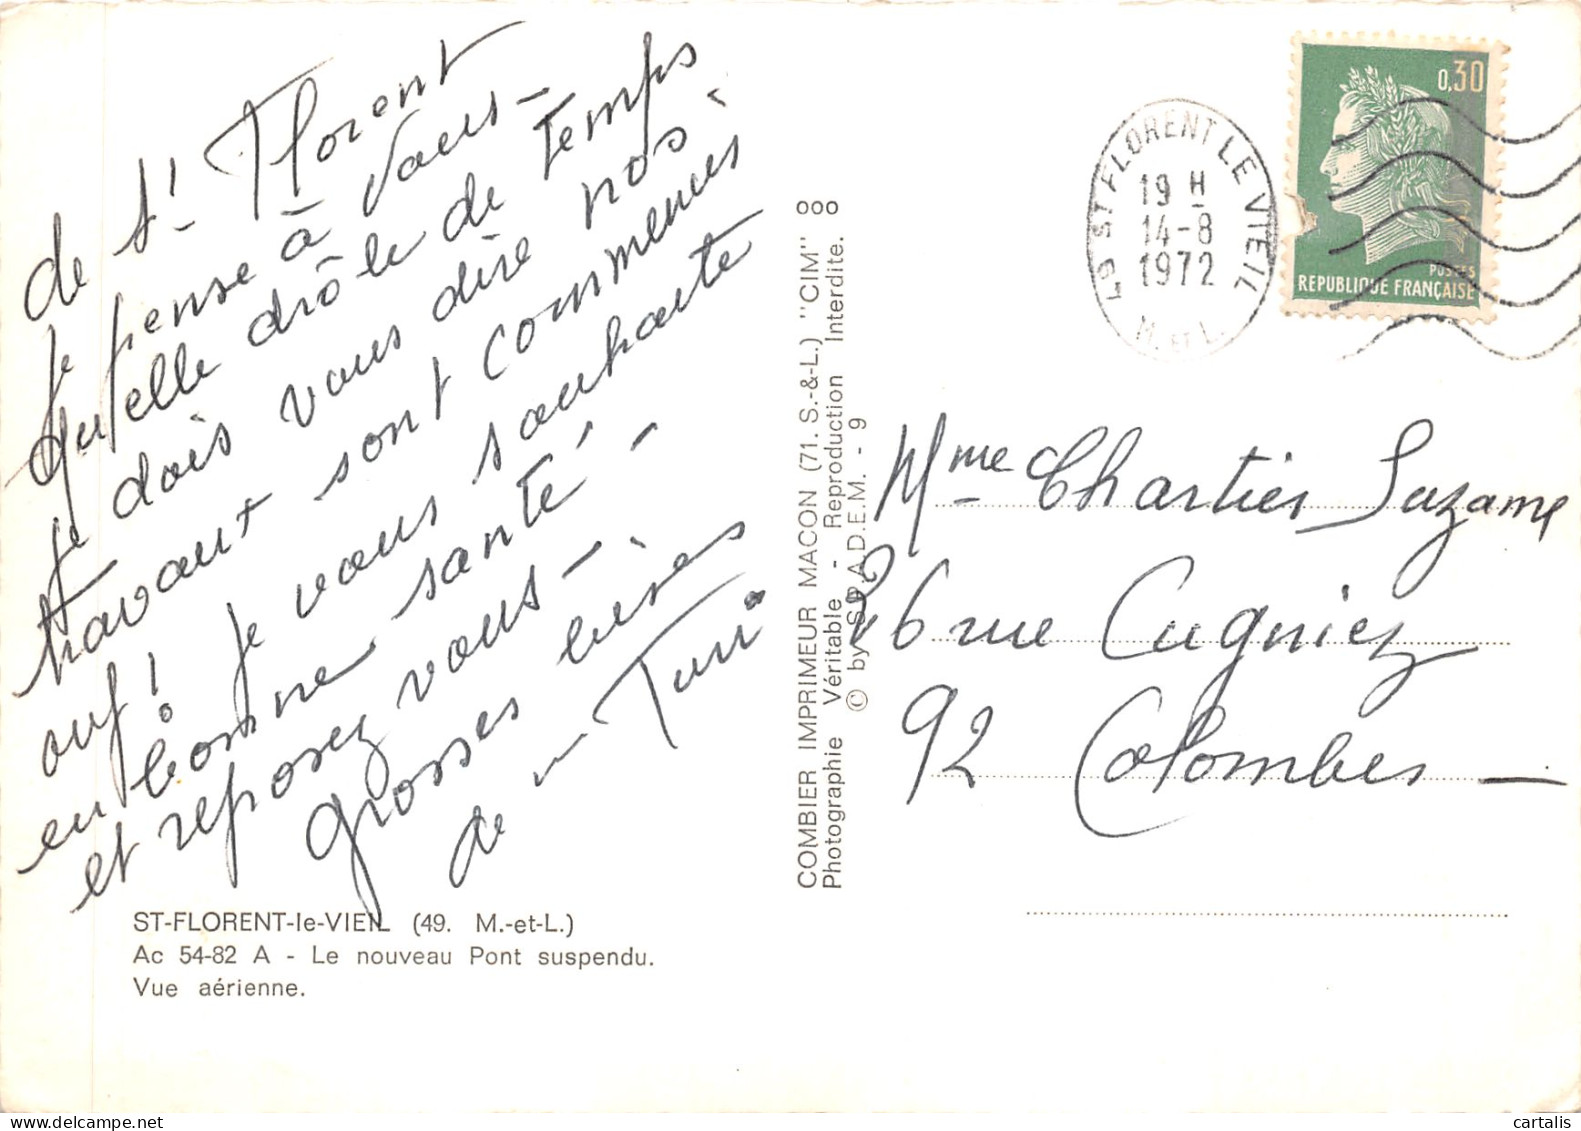 de St Florent
je pense à vous -
qu'elle drôle de temps
je dois vous dire nos
travaux sont commencés
ouf! je vous souhaite
en bonne santé -
et reposez vous -
grosses bises
de
ST-FLORENT-le-VIEIL (49. M.-et-L.)
Ac 54-82 A - Le nouveau Pont suspendu.
Vue aérienne.
COMBIER IMPRIMEUR MACON (71. S.-&-L.) "CIM" ooo
Photographie Véritable - Reproduction Interdite.
© by S.P.A.D.E.M. - 9
49 ST FLORENT LE VIEIL
19 H
14-8
1972
M. ET L.
0,30
POSTES
REPUBLIQUE FRANÇAISE
Mme Chartier Suzanne
26 rue Cugniez
92 Colombes -
cartalis